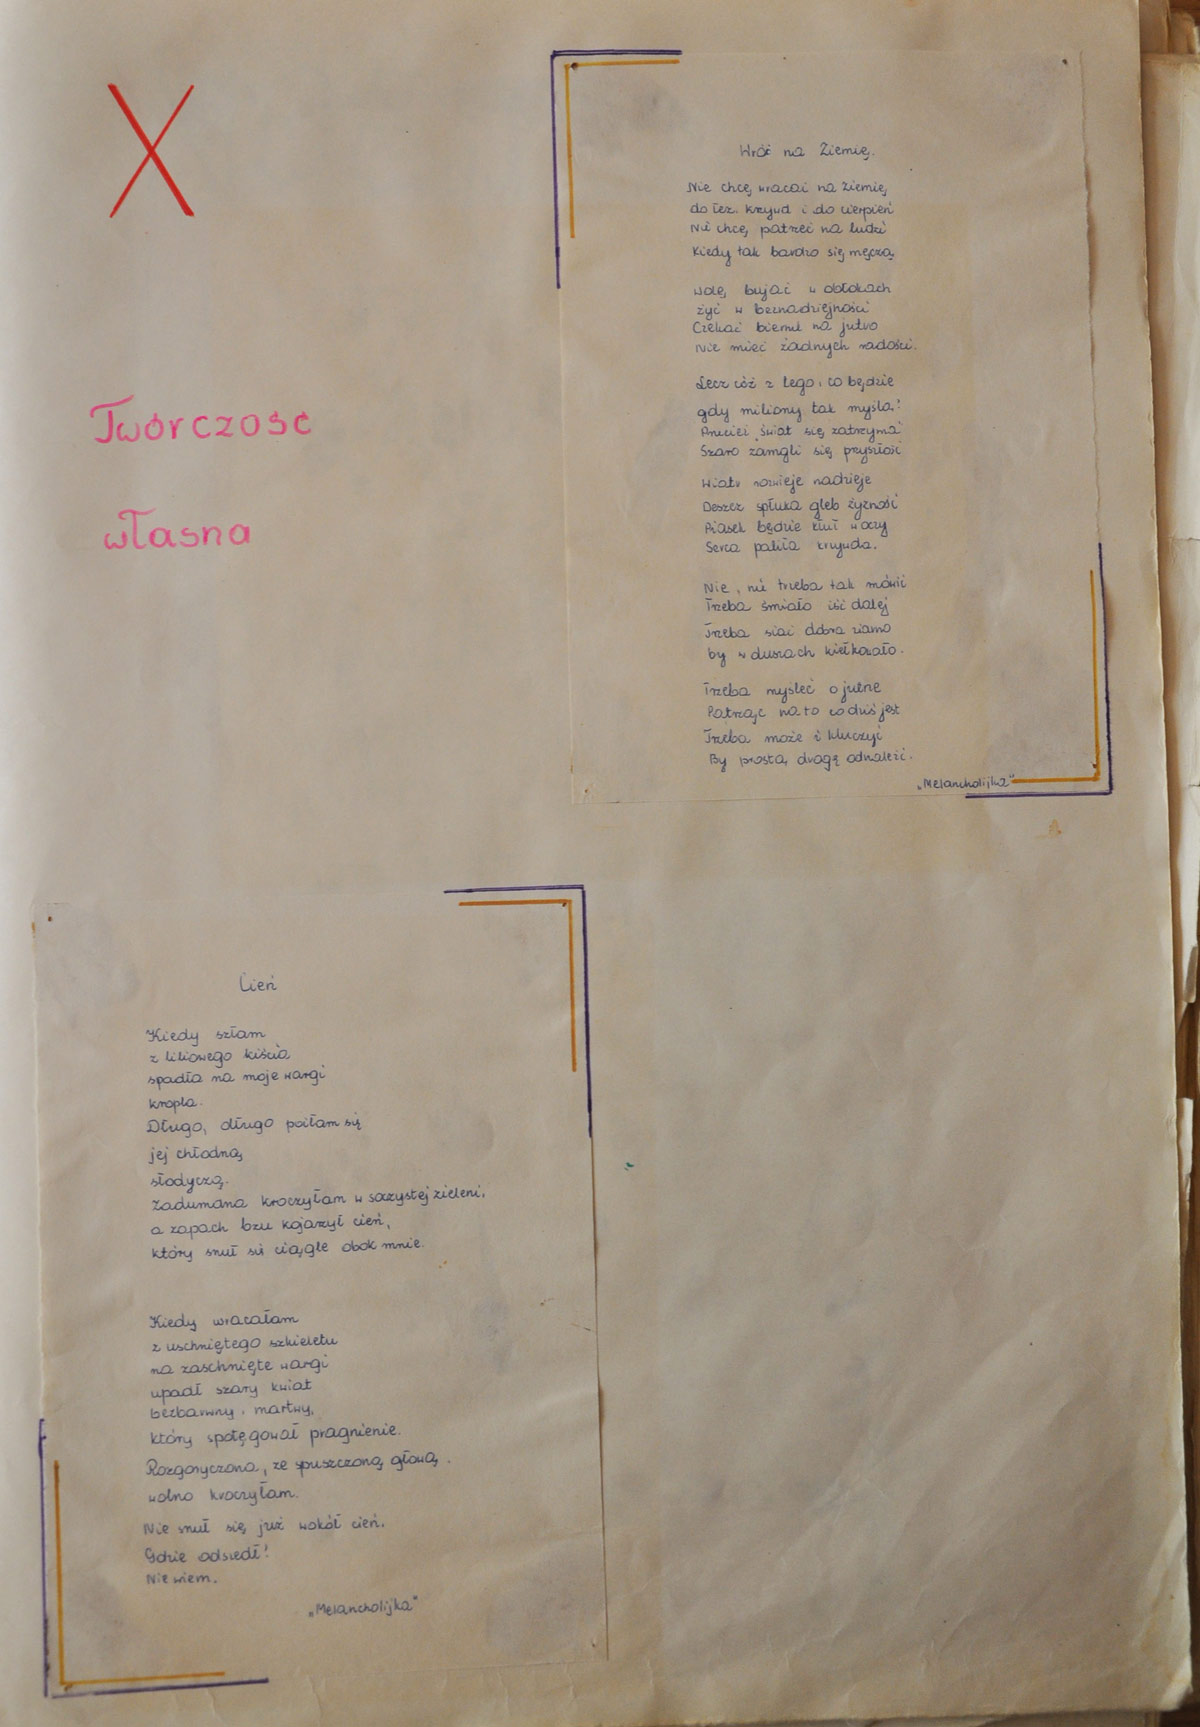 X
Twórczość
własna
Wróć na Ziemię.
Nie chcę wracać na ziemię
do łez, krzywd i do cierpień
Nie chcę patrzeć na ludzi
Kiedy tak bardzo się męczą
Wolę bujać w obłokach
żyć w beznadziejności
Czekać biernie na jutro
Nie mieć żadnych radości.
Lecz cóż z tego, co będzie
gdy miliony tak myślą?
Przecież świat się zatrzyma
Szaro zamgli się przyszłość
Wiatr rozwieje nadzieje
Deszcz spłuka gleb żyzność
Piasek będzie kuł w oczy
Serca paliła krzywda.
Nie, nie trzeba tak mówić
Trzeba śmiało iść dalej
Trzeba siać dobra ziarno
by w duszach kiełkowało.
Trzeba myśleć o jutrze
Patrząc na to co dziś jest
Trzeba może i kluczyć
By prostą drogę odnaleźć.
„Melancholijka"
Cień
Kiedy szłam
z liliowego kiścia
spadła na moje wargi
kropla.
Długo, długo poiłam się
jej chłodną
słodyczą.
Zadumana kroczyłam w soczystej zieleni,
a zapach bzu kojarzył cień,
który snuł się ciągle obok mnie.
Kiedy wracałam
z uschniętego szkieletu
na zaschnięte wargi
upadł szary kwiat
bezbarwny, martwy,
który spotęgował pragnienie.
Rozgoryczona, ze spuszczoną głową,
wolno kroczyłam.
Nie snuł się już wokół cień.
Gdzie odszedł?
Nie wiem.
„Melancholijka"